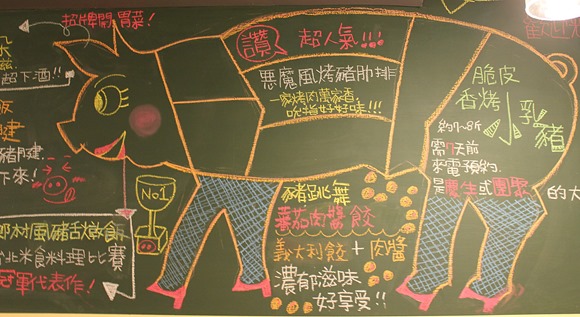 招牌開胃菜!
超下酒!!
讚
超人氣!!!
惡魔風烤豬肋排
一家烤肉萬家香
吮指好好味!!!
脆皮
香烤小乳豬
約7~8斤
需7天前
來電預約.
是慶生或團聚的大
下來!
No.1
豬跳舞
蕃茄肉醬餃
義大利餃+肉醬
濃郁滋味
好享受!!
鄉村風豬舌燉飯
台北米食料理比賽
冠軍代表作!